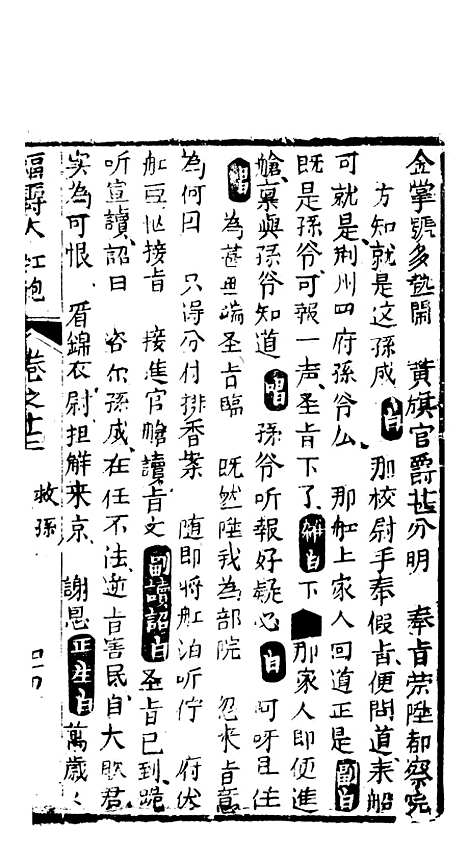 金掌號多整開　黃旗官爵甚分明　奉旨荣陞都察完
方知就是这孫成　白　那校尉手奉假旨便問道来船
可就是荆州四府孫爷么　那舡上家人回道正是　副白
既是孫爷可報一声圣旨下了　雜白　下　那家人即便進
艙禀與孫爷知道　唱　孫爷听報好疑心　白　呵呀且住
唱　為甚無端圣旨臨　既然陞我為部院　忽来旨意
為何因　只得分付排香案　随即將舡泊听佇　府伏
舡豆忙接旨　接進官艙讀旨文　副讀詔白　圣旨已到跪
听宣讀詔曰　咨尔孫成在任不法逆旨害民自大欺君
实為可恨　着錦衣尉担解来京　謝恩　正生白　萬歲
福壽大紅袍　卷之十三　救孫